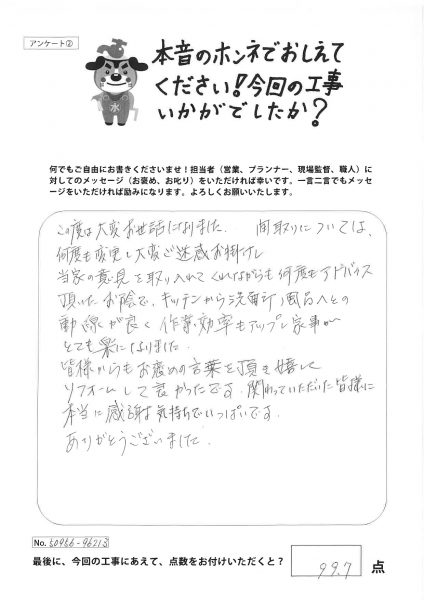 アンケート②
本音のホンネでおしえて
ください!今回の工事
いかがでしたか?
水
何でもご自由にお書きくださいませ!担当者(営業、プランナー、現場監督、職人)に
対してのメッセージ(お褒め、お叱り)をいただければ幸いです。一言二言でもメッセ
ージをいただければ励みになります。よろしくお願いいたします。
この度は大変お世話になりました. 間取りについては、
何度も変更し大変ご迷惑お掛けし
当家の意見を取り入れてくれながらも何度もアドバイス
頂いたお陰で、キッチンから洗面所、風呂へとの
動線が良く作業効率もアップし家事が
とても楽になりました.
皆様からもお褒めの言葉を頂き嬉しく
リフォームして良かったです. 関わっていただいた皆様に
本当に感謝な気持ちでいっぱいです.
ありがとうございました.
No. 50956-96213
最後に、今回の工事にあえて、点数をお付けいただくと? 99.7 点